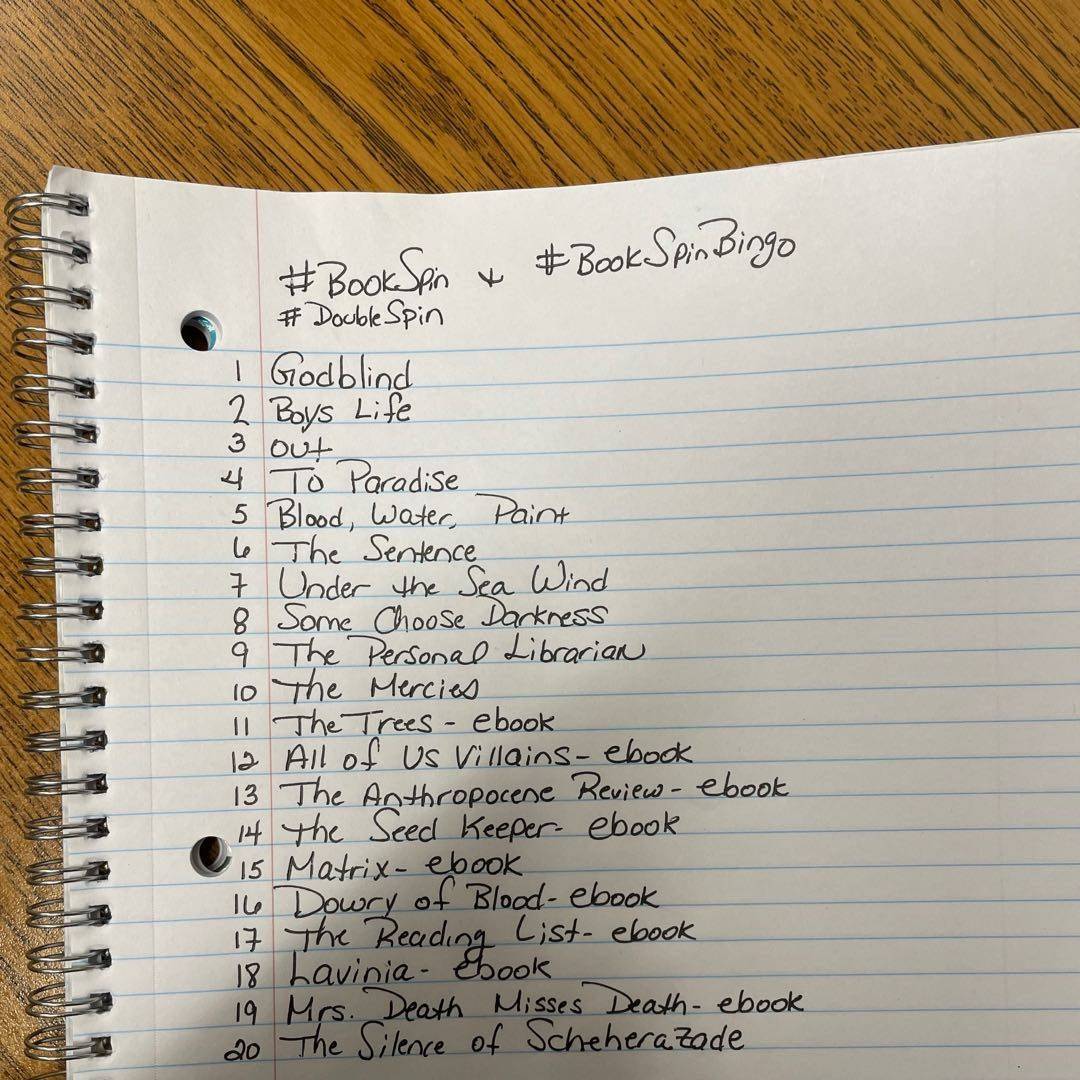 #BookSpin + #BookSpinBingo
#DoubleSpin
1 Godblind
2 Boys Life
3 out
4 To Paradise
5 Blood, Water, Paint
6 The Sentence
7 Under the Sea Wind
8 Some Choose Darkness
9 The Personal Librarian
10 The Mercies
11 The Trees - ebook
12 All of Us Villains - ebook
13 The Anthropocene Review - ebook
14 The Seed Keeper - ebook
15 Matrix - ebook
16 Dowry of Blood - ebook
17 The Reading List - ebook
18 Lavinia - ebook
19 Mrs. Death Misses Death - ebook
20 The Silence of Scheherazade